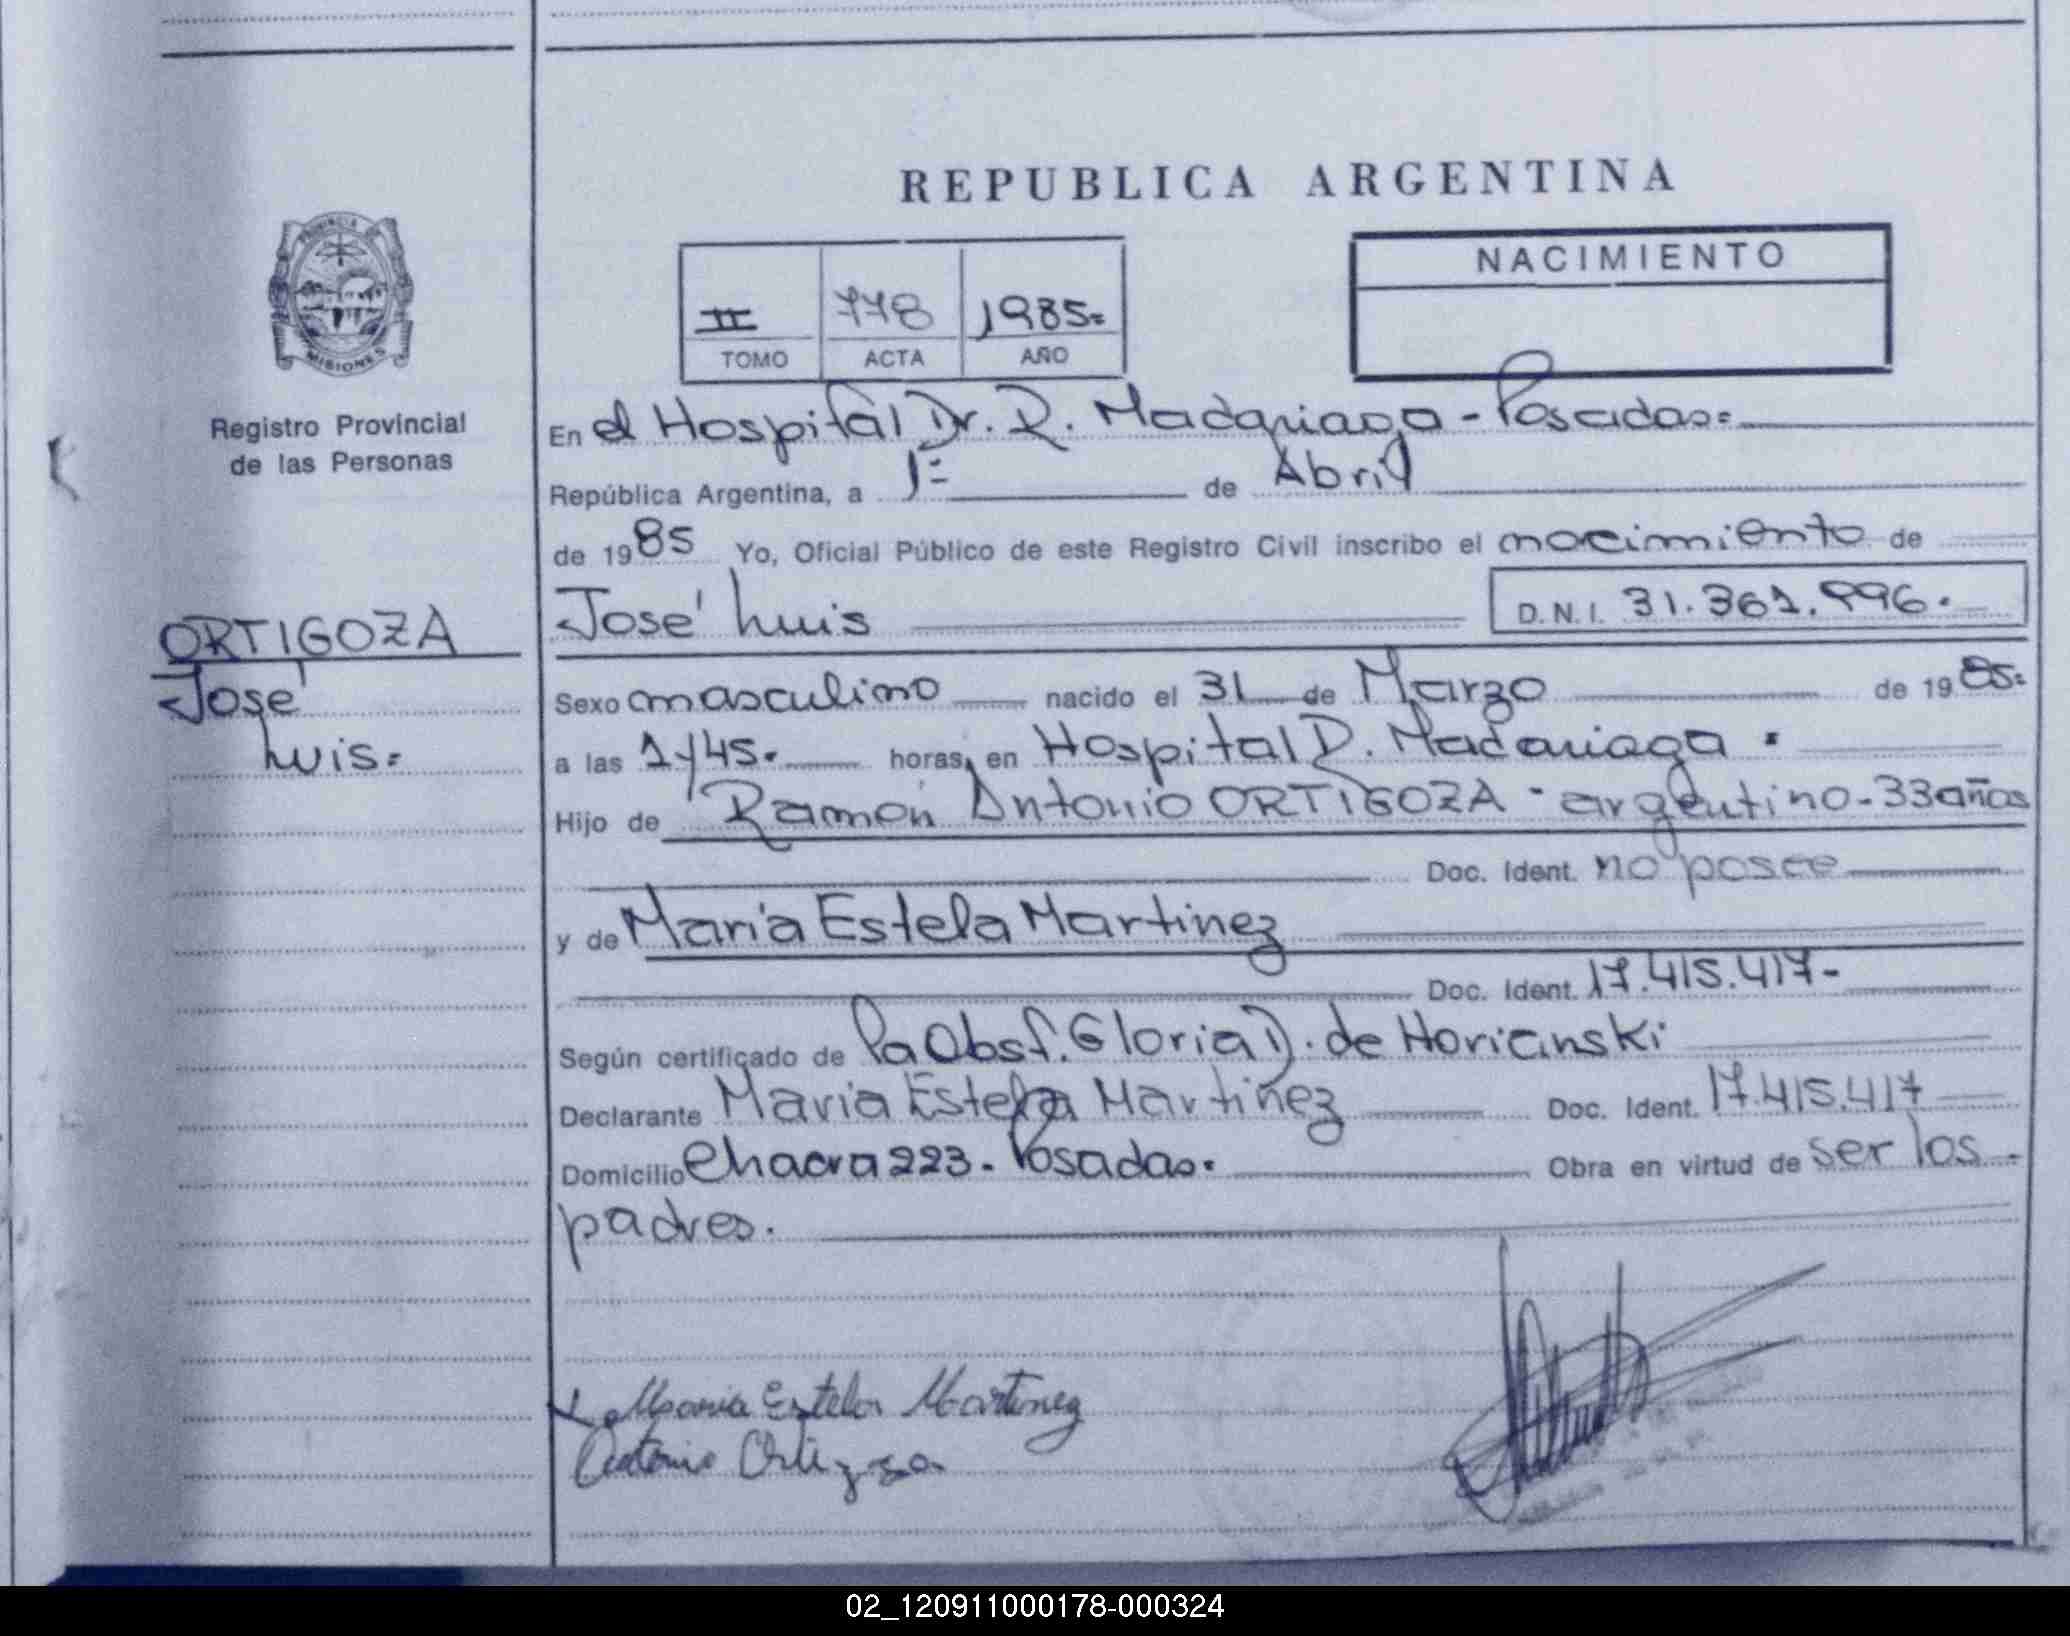 REPUBLICA ARGENTINA
NACIMIENTO
II 778 1985=
TOMO ACTA AÑO
PROVINCIA DE
MISIONES
Registro Provincial
de las Personas
En el Hospital Dr. R. Madariaga - Posadas=
República Argentina, a 1= de Abril
de 1985 Yo, Oficial Público de este Registro Civil inscribo el nacimiento de
ORTIGOZA
José
Luis=
José Luis D.N.I. 31.361.996.
Sexo masculino nacido el 31 de Marzo de 1985=
a las 1y45. horas, en Hospital D. Madariaga.
Hijo de Ramón Antonio ORTIGOZA - argentino - 33 años
Doc. Ident. no posee
y de María Estela Martinez
Doc. Ident. 17.415.417-
Según certificado de la Obst. Gloria D. de Horianski
Declarante María Estela Martinez Doc. Ident. 17.415.417
Domicilio Chacra 223. Posadas. Obra en virtud de ser los
padres.
Maria Estela Martinez
Antonio Ortigoza
02_120911000178-000324